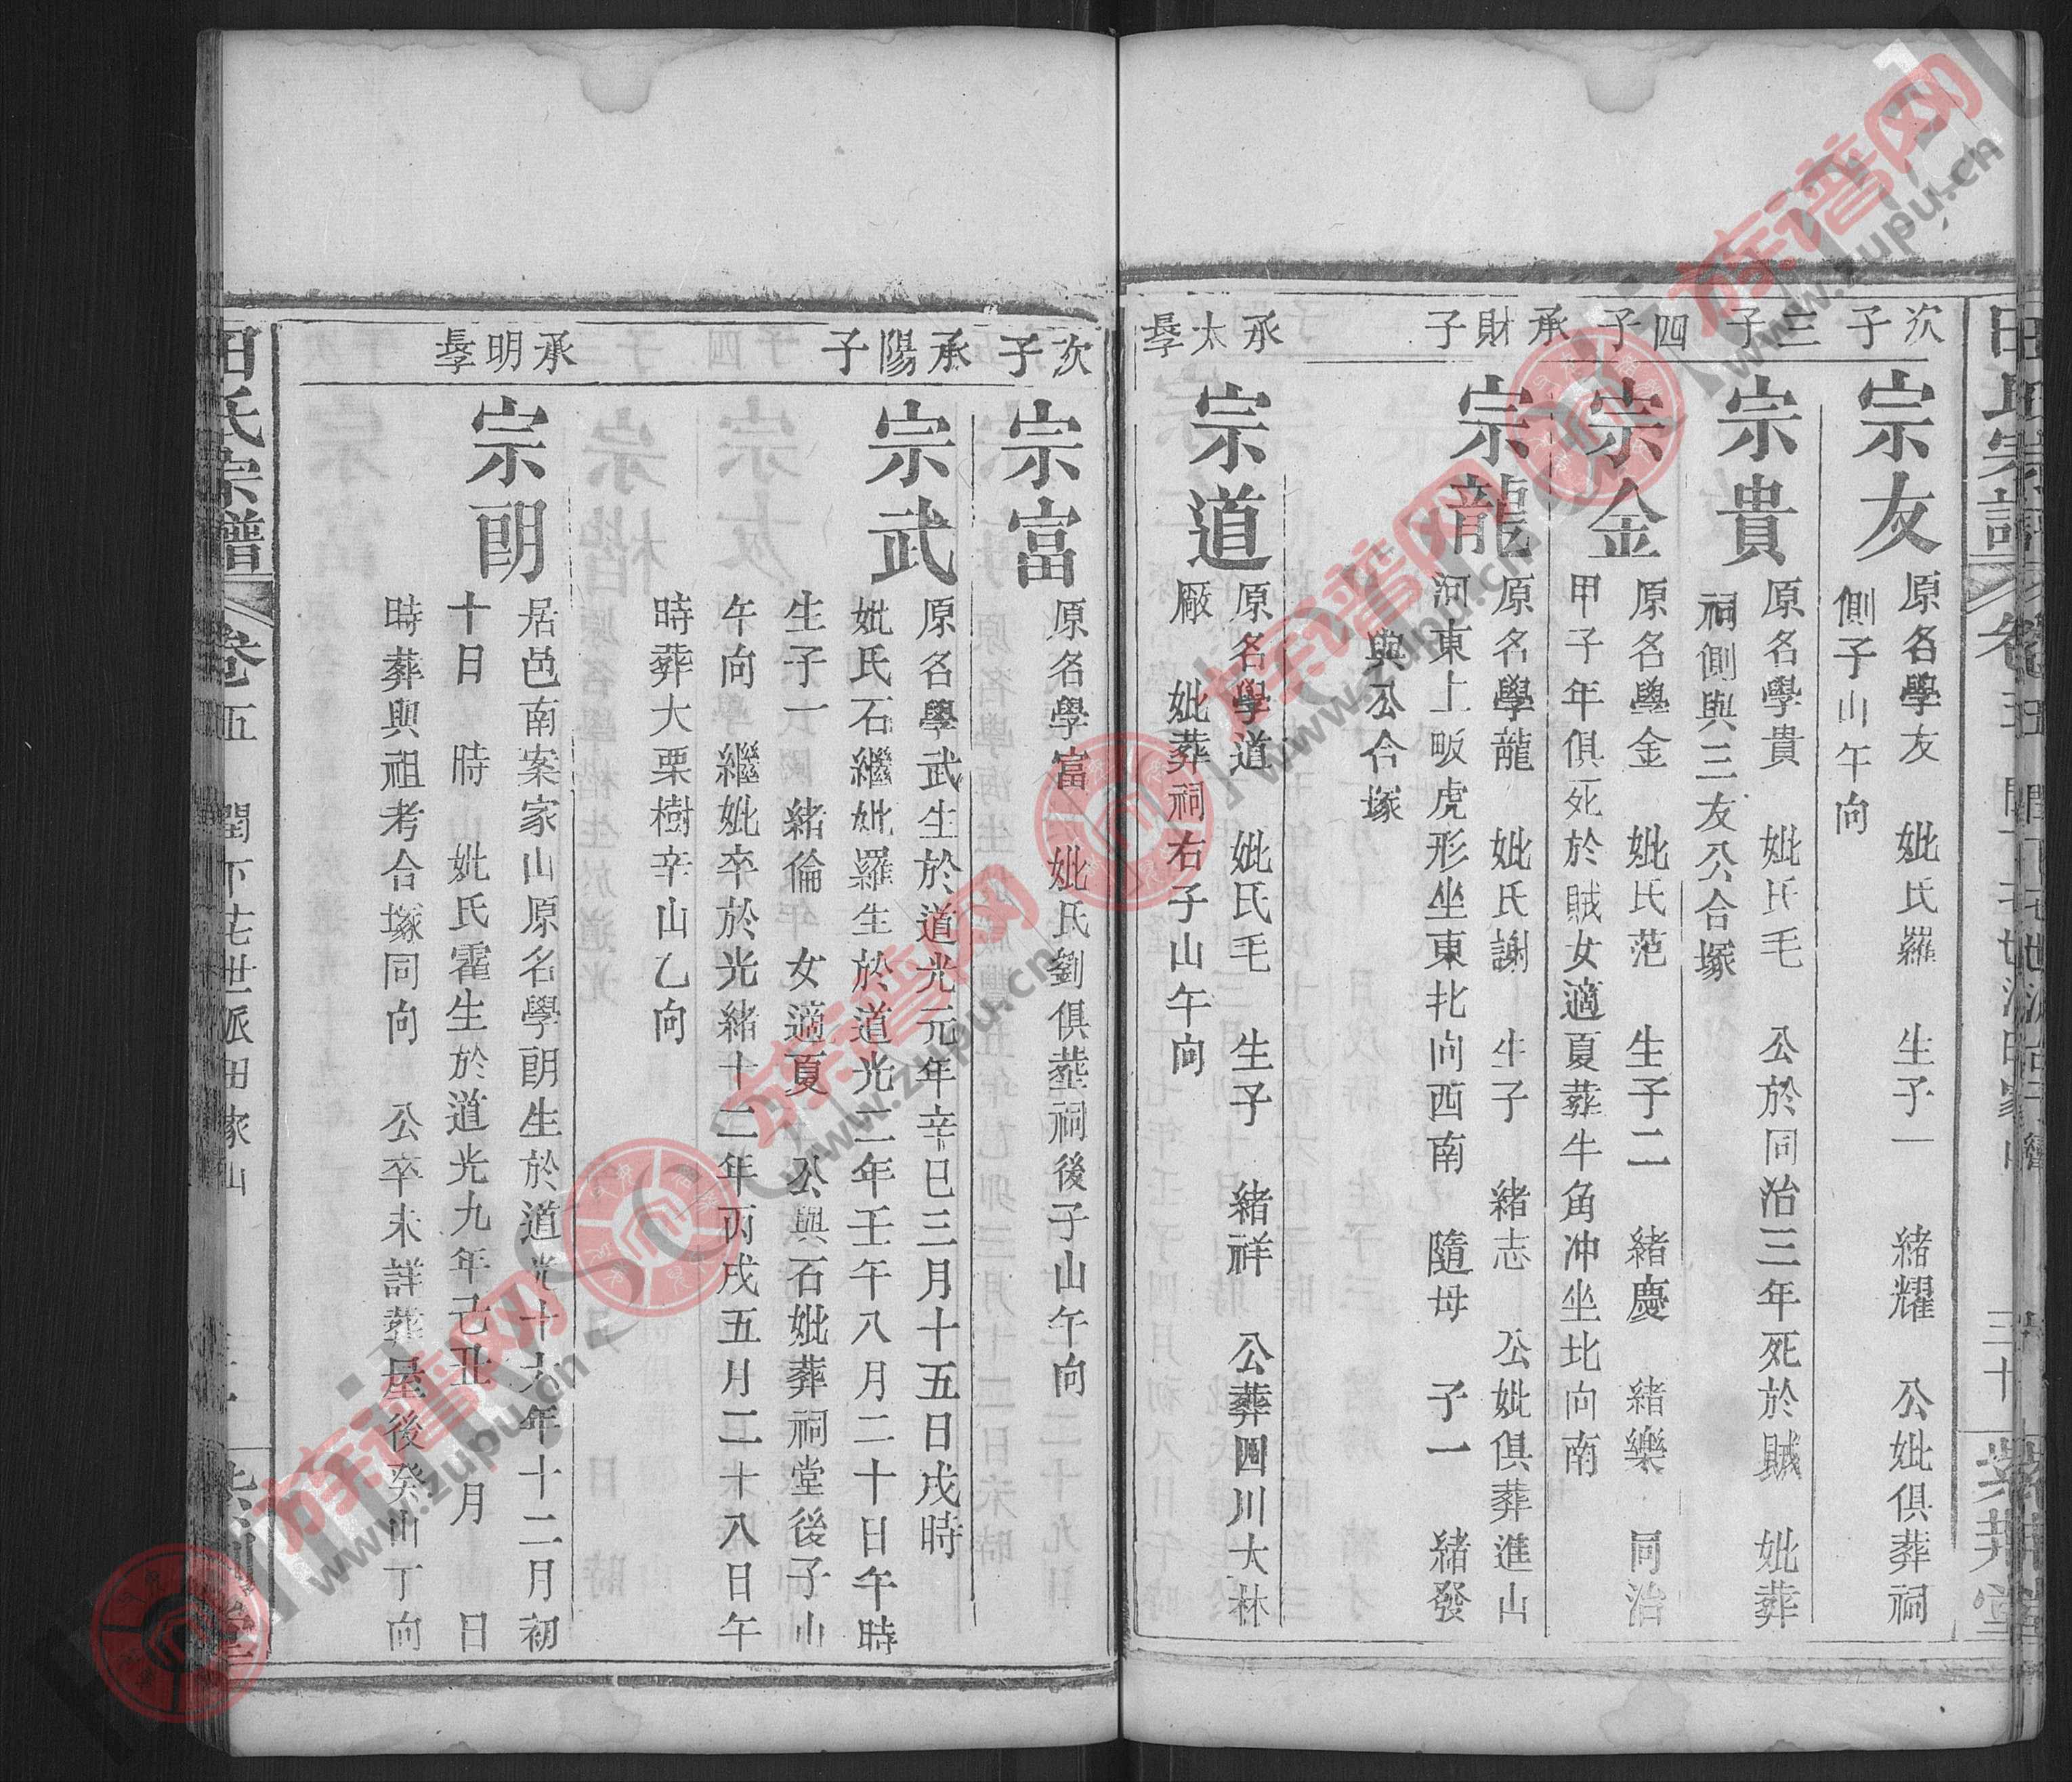 次子
宗友
原名學友 妣氏羅 生子一 緒耀 公妣俱葬祠
側子山午向
三子
宗貴
原名學貴 妣氏毛 公於同治三年死於賊 妣葬
祠側與三友公合塚
四子
宗金
原名學金 妣氏范 生子二 緒慶 緒樂 同治
甲子年俱死於賊女適夏葬牛角冲坐北向南
承財子
宗龍
原名學龍 妣氏謝 生子 緒志 公妣俱葬進山
河東上畈虎形坐東北向西南 隨母 子一 緒發
與公合塚
承太長子
宗道
原名學道 妣氏毛 生子 緒祥 公葬四川大林
廠 妣葬祠右子山午向
次子
宗富
原名學富 妣氏劉俱葬祠後子山午向
承陽子
宗武
原名學武生於道光元年辛巳三月十五日戌時
妣氏石繼妣羅生於道光二年壬午八月二十日午時
生子一 緒倫 女適夏 公與石妣葬祠堂後子山
午向 繼妣卒於光緒十二年丙戌五月二十八日午
時葬大栗樹辛山乙向
承明長子
宗朗
居邑南案家山原名學朗生於道光十九年十二月初
十日 時 妣氏霍生於道光九年己丑 十月 日
時葬與祖考合塚同向 公卒未詳葬屋後癸山丁向
田氏宗譜 卷五 潤下七世派田家山
田氏宗譜 卷五
三十 紫荊堂
族谱网
www.zupu.cn